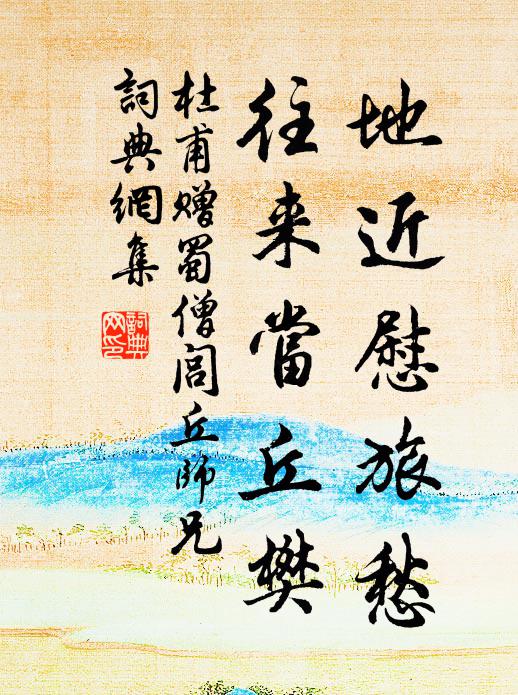 地近慰旅愁
往来當丘樊
杜甫贈蜀僧閭丘師兄
詞典網集
詞典網印